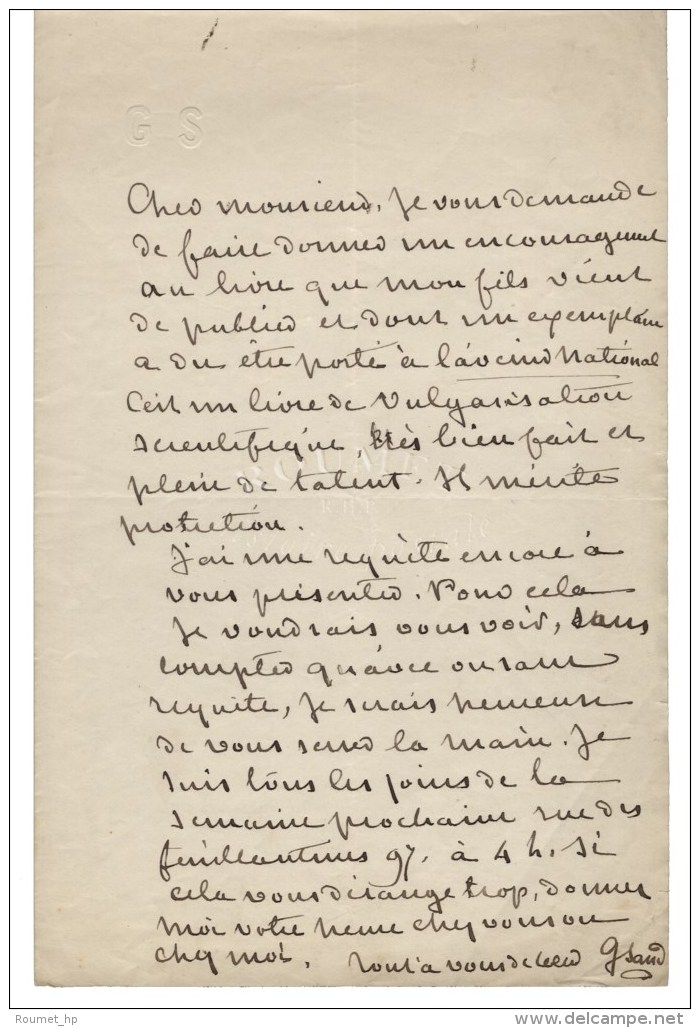 G S
Cher monsieur, je vous demande
de faire donner un encouragement
au livre que mon fils vient
de publier et dont un exemplaire
a du être porté à l'avenir National
C'est un livre de vulgarisation
scientifique, très bien fait et
plein de talent. Il mérite
protection.
J'ai une requète encore à
vous présenter. Pour cela
je voudrais vous voir, sans
compter qu'avec ou sans
requète, je serais heureuse
de vous serrer la main. Je
suis tous les jours de la
semaine prochaine rue des
feuillantines 97. à 4 h. si
cela vous dérange trop, donnez
moi votre heure chez vous ou
chez moi. Tout à vous de cœur G Sand
Roumet_hp
delcampe.net